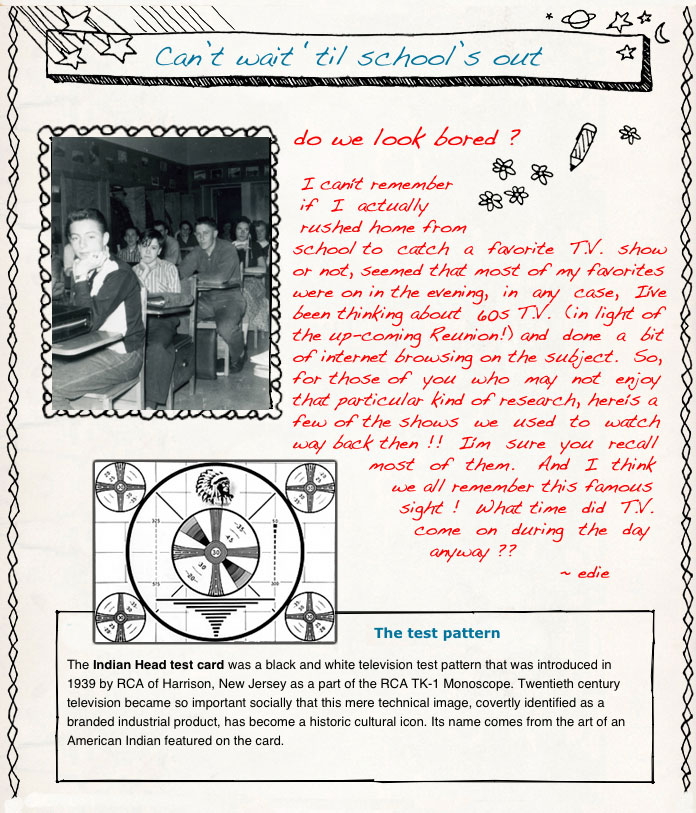 Can't wait 'til school's out
do we look bored ?
I can't remember
if I actually
rushed home from
school to catch a favorite T.V. show
or not, seemed that most of my favorites
were on in the evening, in any case, I've
been thinking about 60s T.V. (in light of
the up-coming Reunion!) and done a bit
of internet browsing on the subject. So,
for those of you who may not enjoy
that particular kind of research, here's a
few of the shows we used to watch
way back then !! I'm sure you recall
most of them. And I think
we all remember this famous
sight ! What time did T.V.
come on during the day
anyway ??
~ edie
325
50
30
575
300
The test pattern
The Indian Head test card was a black and white television test pattern that was introduced in
1939 by RCA of Harrison, New Jersey as a part of the RCA TK-1 Monoscope. Twentieth century
television became so important socially that this mere technical image, covertly identified as a
branded industrial product, has become a historic cultural icon. Its name comes from the art of an
American Indian featured on the card.